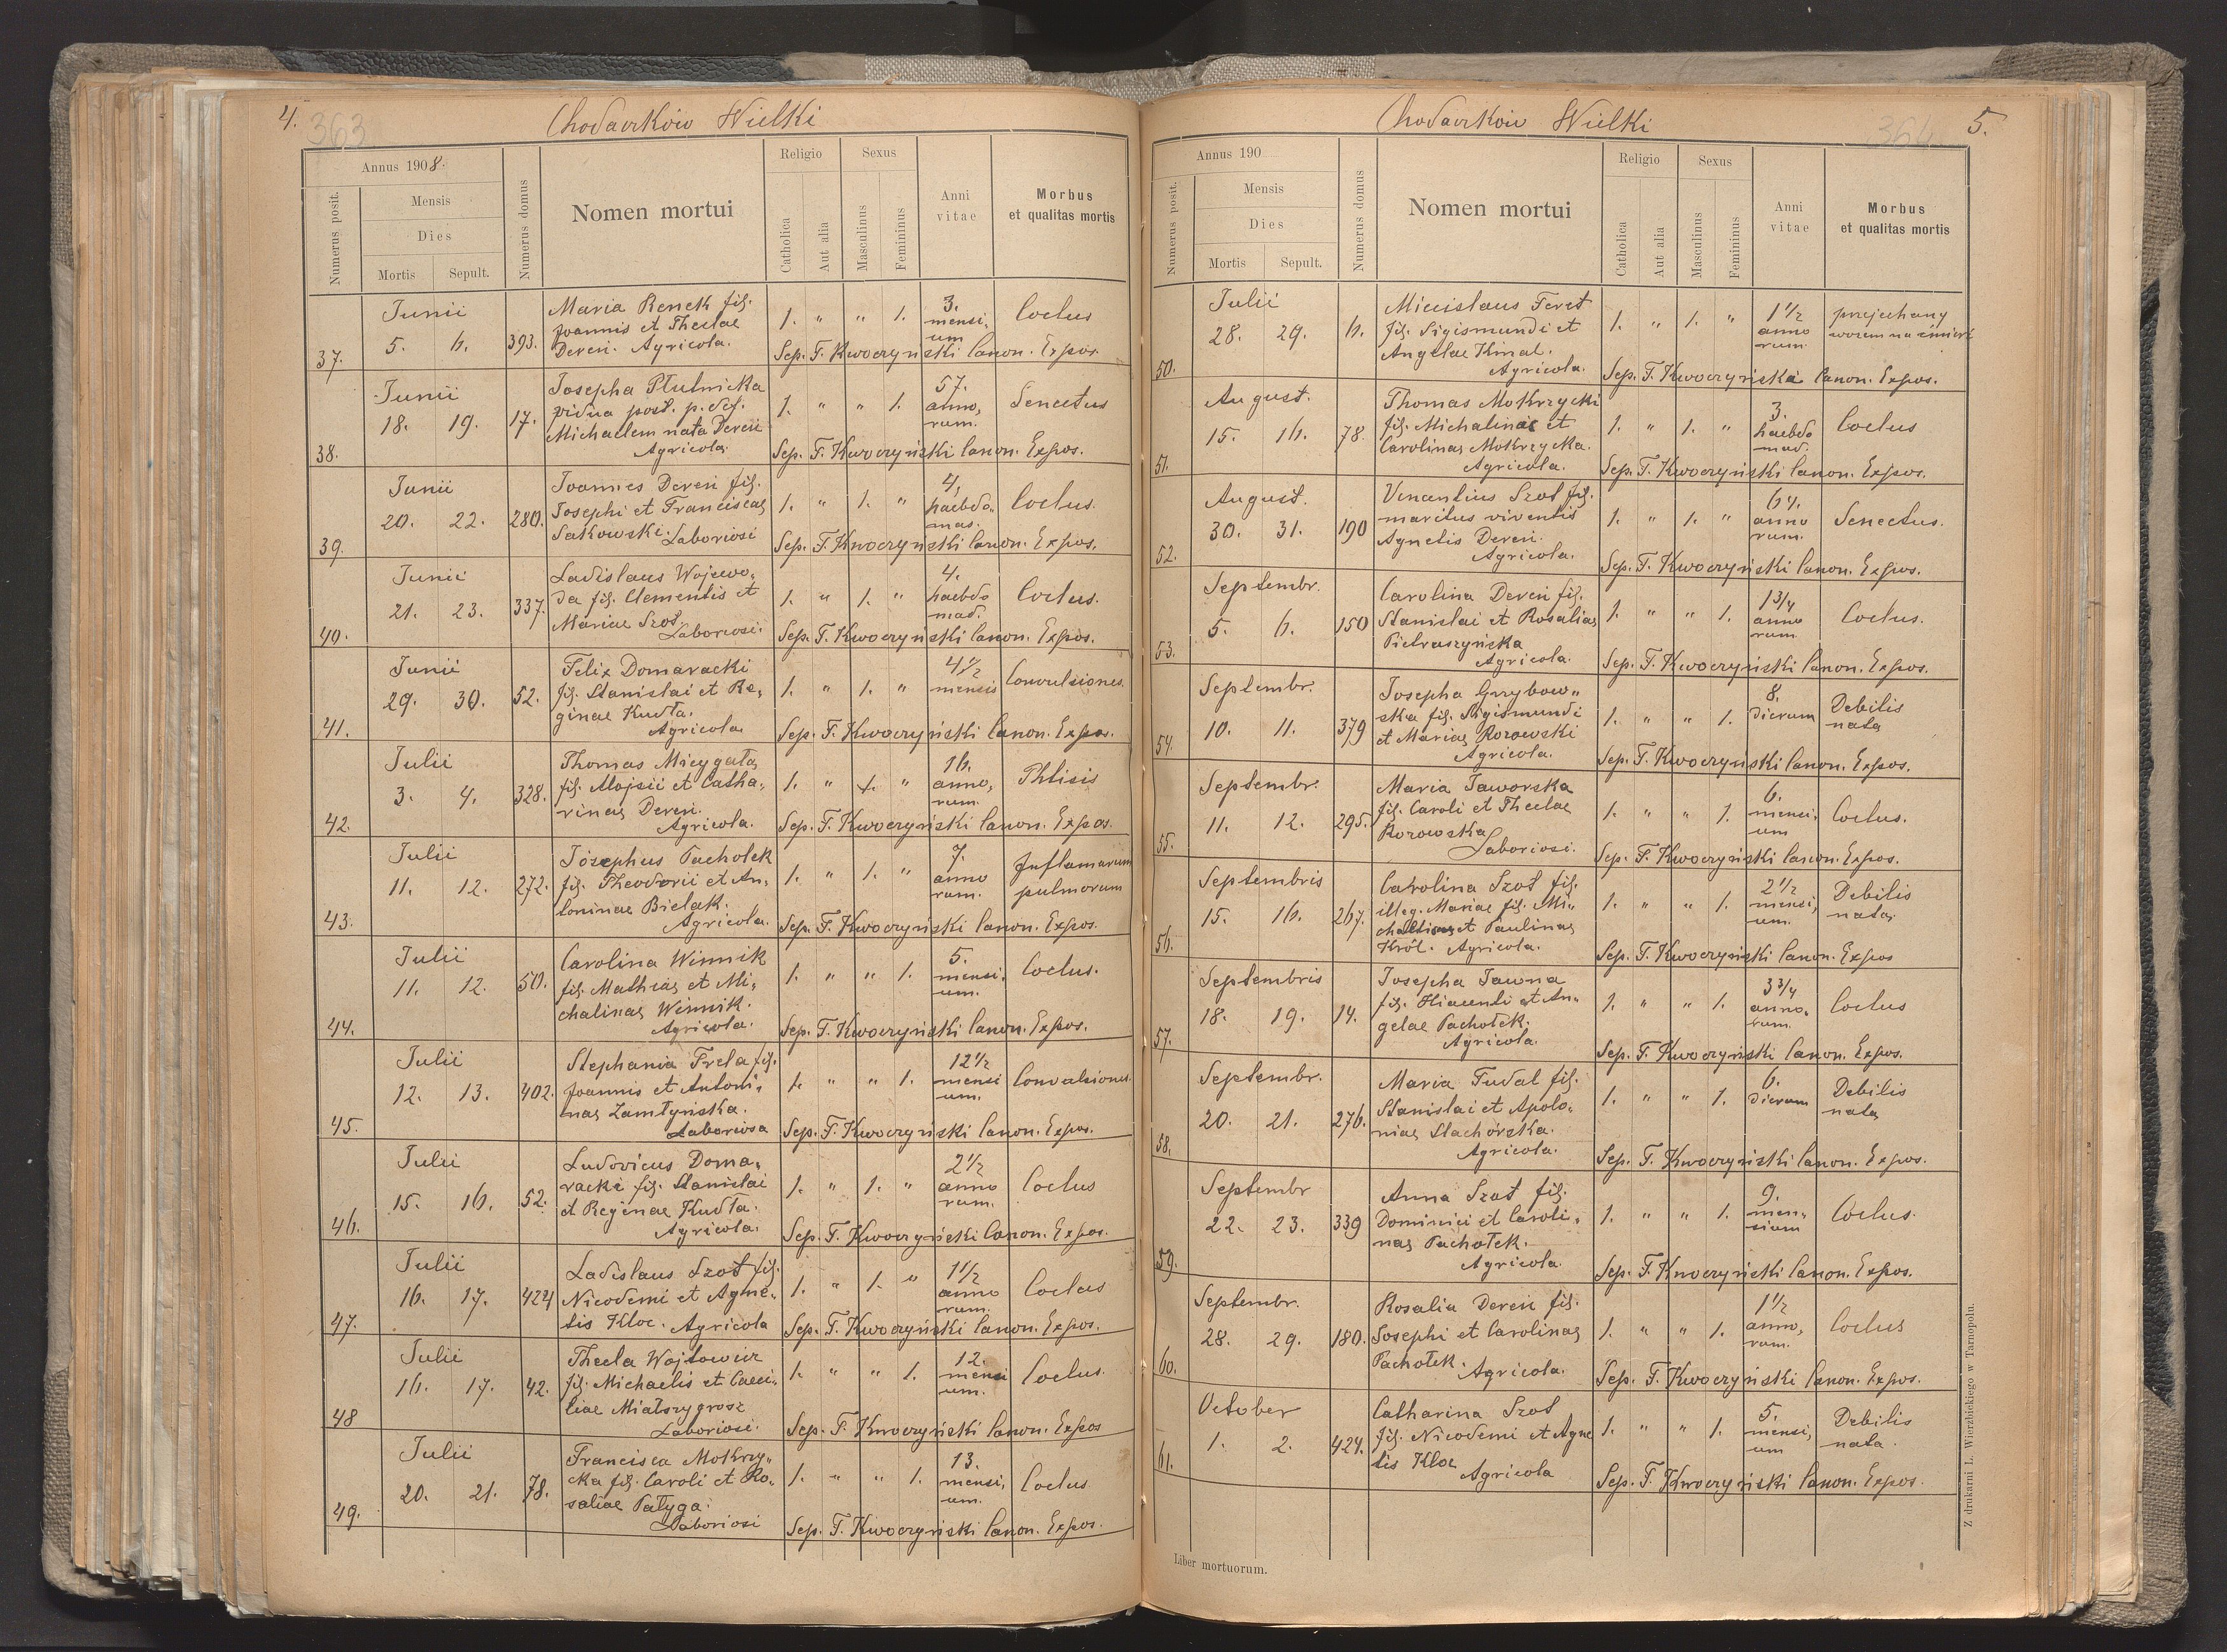 4.
363
Chodaczków Wielki
Annus 1908.
Numerus posit.
Mensis
Dies
Mortis
Sepult.
Numerus domus
Nomen mortui
Religio
Catholica
Aut alia
Sexus
Masculinus
Femininus
Anni vitae
Morbus et qualitas mortis
37. Junii 5. 6. 393.
Maria Benek fil.
Joannis et Theclae
Dereń. Agricola.
1. " " 1. 3. mensium Coclus
Sep. F. Kwoczyński Canon. Expos.
38. Junii 18. 19. 17.
Josepha Płutnicka
vidua post. p. def.
Michaelem nata Dereń
Agricola.
1. " " 1. 57. annorum. Senectus
Sep. F. Kwoczyński Canon. Expos.
39. Junii 20. 22. 280.
Joannes Dereń fil.
Josephi et Franciscae
Sakowski. Laboriosi
1. " 1. " 4. haebdomas. Coclus.
Sep. F. Kwoczyński Canon. Expos.
40. Junii 21. 23. 337.
Ladislaus Wojewo„
da fil. Clementis et
Mariae Szot.
Laboriosi.
1. " 1. " 4. haebdomad. Coclus.
Sep. F. Kwoczyński Canon. Expos.
41. Junii 29. 30. 52.
Felix Domaracki
fil. Stanislai et Re„
ginae Kudła.
Agricola
1. " 1. " 4½ mensis Convulsiones.
Sep. F. Kwoczyński Canon. Expos.
42. Julii 3. 4. 328.
Thomas Micygała
fil. Alojsii et Catha„
rinae Dereń.
Agricola.
1. " 1. " 16. annorum. Phtisis
Sep. F. Kwoczyński Canon. Expos.
43. Julii 11. 12. 272.
Josephus Pachołek
fil. Theodorii et An„
toninae Bielak.
Agricola.
1. " 1. " 7. annorum. pulmorum
Sep. F. Kwoczyński Canon. Expos.
44. Julii 11. 12. 50.
Carolina Winnik
fil. Mathiae et Mi„
chalinae Winnik.
Agricola.
1. " " 1. 5. mensium. Coclus.
Sep. F. Kwoczyński Canon. Expos.
45. Julii 12. 13. 402.
Stephania Frela fil.
Joannis et Antoni„
nae Zamłyńska.
Laboriosa
1. " " 1. 12½ mensium. Convulsiones.
Sep. F. Kwoczyński Canon. Expos.
46. Julii 15. 16. 52.
Ludovicus Doma„
racki fil. Stanislai
et Reginae Kudła.
Agricola.
1. " 1. " 2½ annorum. Coclus
Sep. F. Kwoczyński Canon. Expos.
47. Julii 16. 17. 424
Ladislaus Szot fil.
Nicodemi et Agne„
tis Kloc. Agricola
1. " 1. " 1½ annorum. Coclus
Sep. F. Kwoczyński Canon. Expos.
48 Julii 16. 17. 42.
Thecla Wojtowicz
fil. Michaelis et Caeci„
liae Miałszygrosz
Laboriosi.
1. " " 1. 12. mensium. Coclus.
Sep. F. Kwoczyński Canon. Expos
49. Julii 20. 21. 78.
Francisca Mokrzy„
cka fil. Caroli et Ro„
saliae Pałyga.
Laboriosi
1. " " 1. 13. mensium. Coclus
Sep. F. Kwoczyński Canon. Expos.
Chodaczków Wielki
364
5.
Annus 190
Numerus posit.
Mensis
Dies
Mortis
Sepult.
Numerus domus
Nomen mortui
Religio
Catholica
Aut alia
Sexus
Masculinus
Femininus
Anni vitae
Morbus et qualitas mortis
50. Julii 28. 29. 6.
Miecislaus Feret
fil. Sigismundi et
Angelae Kinal.
Agricola.
1. " 1. " 1½ annorum przejechany wozem na śmierć
Sep. F. Kwoczyński Canon. Expos.
51. August. 15. 16. 78.
Thomas Mokrzycki
fil. Michalinae et
Carolinae Mokrzycka.
Agricola.
1. " 1. " 3. haebdomad. Coclus
Sep. F. Kwoczyński Canon. Expos.
52. August. 30. 31. 190
Vincentius Szot fil.
maritus viventis
Agnetis Dereń.
Agricola.
1. " 1. " 64. annorum. Senectus.
Sep. F. Kwoczyński Canon. Expos.
53. Septembr. 5. 6. 150
Carolina Dereń fil.
Stanislai et Rosaliae
Pietraszyńska
Agricola.
1. " " 1. 1¾ annorum Coclus.
Sep. F. Kwoczyński Canon. Expos.
54. Septembr. 10. 11. 379
Josepha Grzybow„
ska fil. Sigismundi
et Mariae Rozowski
Agricola.
1. " " 1. 8. dierum Debilis nata
Sep. F. Kwoczyński Canon. Expos.
55. Septembr. 11. 12. 295.
Maria Jaworska
fil. Caroli et Theclae
Rozowska
Laboriosi.
1. " " 1. 6. mensium Coclus.
Sep. F. Kwoczyński Canon. Expos.
56. Septembris 15. 16. 267.
Carolina Szot fil.
illeg. Mariae fil. Mi„
chaelis et Paulinae
Król. Agricola.
1. " " 1. 2½ mensium. Debilis nata
Sep. F. Kwoczyński Canon. Expos
57. Septembris 18. 19. 14.
Josepha Jawna
fil. Hiacenti et An„
gelae Pachołek.
Agricola.
1. " " 1. 3¾ annorum. Coclus
Sep. F. Kwoczyński Canon. Expos.
58. Septembr. 20. 21. 276.
Maria Fudal fil.
Stanislai et Apolo„
niae Stachórska.
Agricola.
1. " " 1. 6. dierum Debilis nata
Sep. F. Kwoczyński Canon. Expos.
59. Septembr 22. 23. 339
Anna Szot fil.
Dominici et Caroli„
nae Pachołek.
Agricola.
1. " " 1. 9. mensium Coclus.
Sep. F. Kwoczyński Canon. Expos.
60. Septembr. 28. 29. 180.
Rosalia Dereń fil.
Josephi et Carolinae
Pachołek. Agricola.
1. " " 1. 1½ annorum. Coclus
Sep. F. Kwoczyński Canon. Expos.
61. October 1. 2. 424.
Catharina Szot
fil. Nicodemi et Agne
tis Kloc
Agricola
1. " " 1. 5. mensium Debilis nata.
Sep. F. Kwoczyński Canon. Expos.
Liber mortuorum.
Z drukarni L. Wierzbickiego w Tarnopolu.